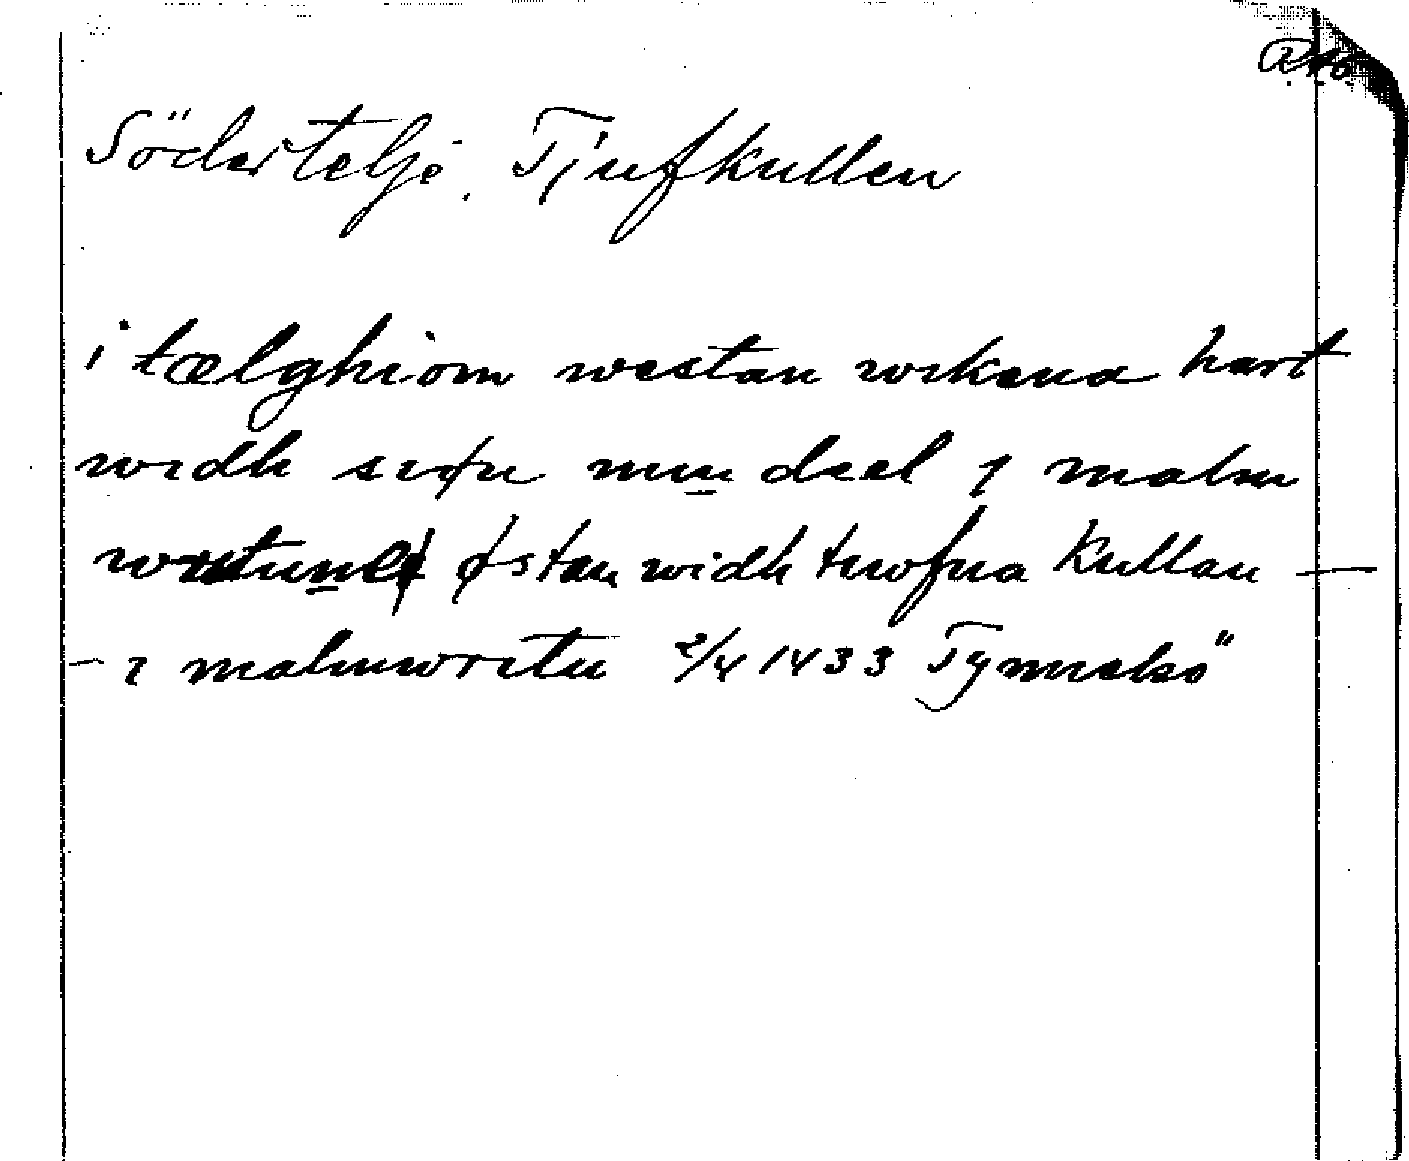 Södertelje. Tjufkullen
i tælghiom westan wikena hart
widh siøn min deel i malm
østan widh tiwfua kullan —
— i malmwritu 2/4 1433 Tynnelsö